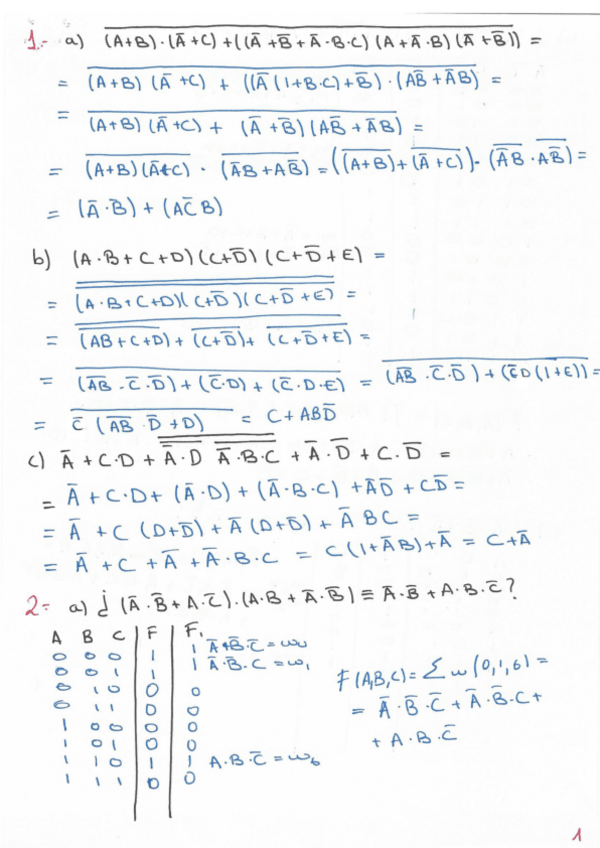 1.- a) \overline{(A+B)·(Ā+C)+((Ā+B̄+Ā·B·C)(A+Ā·B)(Ā+B̄))} =
= \overline{(A+B)(Ā+C) + ((Ā(1+B·C)+B̄)·(AB̄+ĀB)} =
= \overline{(A+B)(Ā+C) + (Ā+B̄)(AB̄+ĀB)} =
= \overline{(A+B)(Ā+C)} · \overline{(ĀB+AB̄)} = (\overline{(A+B)}+\overline{(Ā+C)})·(\overline{ĀB}·\overline{AB̄}) =
= (Ā·B̄)+(AC̄B)
b) (A·B+C+D)(C+D̄)(C+D̄+E) =
= \overline{\overline{(A·B+C+D)(C+D̄)(C+D̄+E)}} =
= \overline{\overline{(AB+C+D)}+\overline{(C+D̄)}+\overline{(C+D̄+E)}} =
= \overline{(\overline{AB}·C̄·D̄)+(C̄·D)+(C̄·D·E)} = \overline{(\overline{AB}·C̄·D̄)+(C̄D(1+E))} =
= \overline{C̄(\overline{AB}·D̄+D)} = C+ABD̄
c) Ā+C·D+\overline{\overline{Ā·D} \overline{Ā·B·C}}+Ā·D̄+C·D̄ =
= Ā+C·D+(Ā·D)+(Ā·B·C)+ĀD̄+CD̄ =
= Ā+C(D+D̄)+Ā(D+D̄)+ĀBC =
= Ā+C+Ā+Ā·B·C = C(1+ĀB)+Ā = C+Ā
2.- a) ¿(Ā·B̄+A·C̄)·(A·B+Ā·B̄)≡Ā·B̄+A·B·C̄?
A B C F F₁
0 0 0 1 1 Ā·B̄·C̄=ω₀
0 0 1 1 1 Ā·B̄·C=ω₁
0 1 0 0 0
0 1 1 0 0
1 0 0 0 0
1 0 1 0 0
1 1 0 1 1 A·B·C̄=ω₆
1 1 1 0 0
F(A,B,C)=Σω(0,1,6)=
= Ā·B̄·C̄+Ā·B̄·C+
+A·B·C̄
1